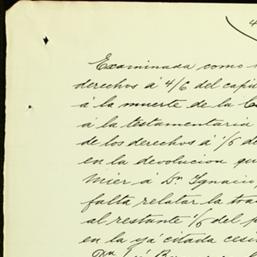 4
Examinada como
derechos á 4/6 del capi
á la muerte de la C
á la testamentaria
de los derechos á 1/6 d
en la devolucion qu
mier á Dn. Ignacio,
falta relatar la tra
al restante 1/6 del p
en la yá citada cesi